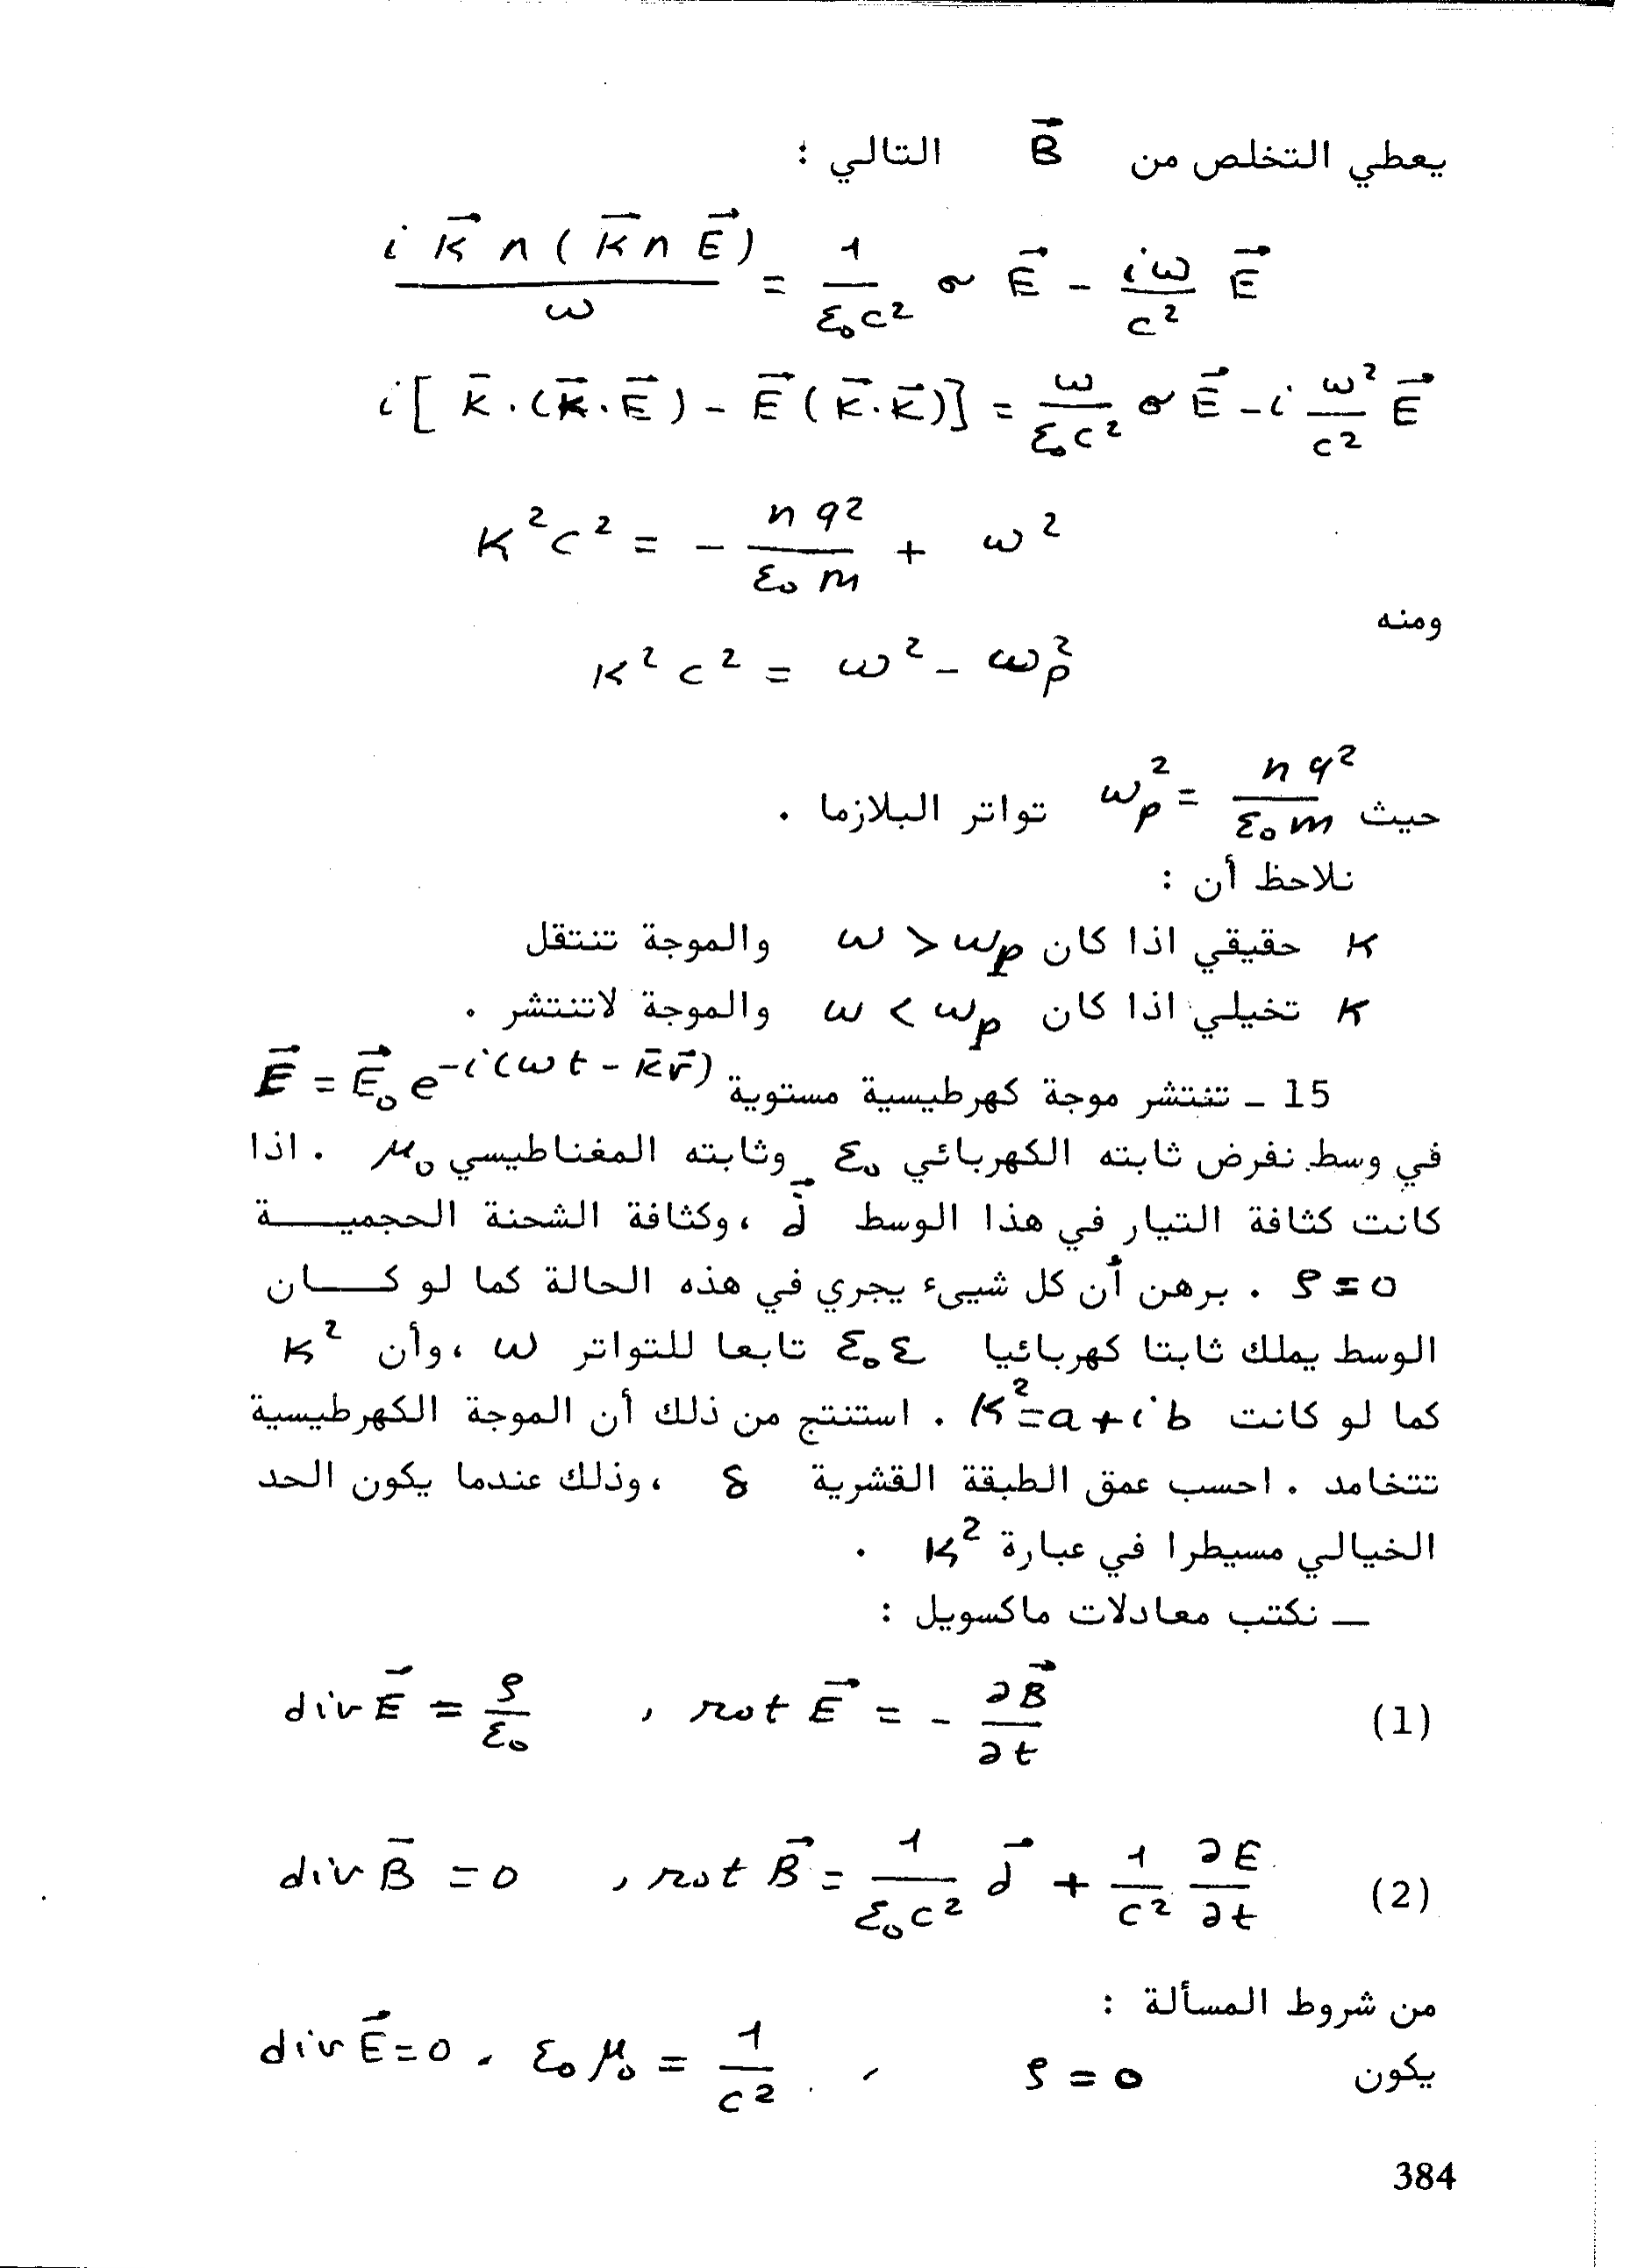 يعطي التخلص من B⃗ التالي :
i K⃗ ∧ ( K⃗ ∧ E⃗ ) / ω = 1/(ε₀c²) σ E⃗ - iω/c² E⃗
i[ K⃗ . (K⃗ . E⃗ ) - E⃗ ( K⃗ . K⃗ )] = ω/(ε₀c²) σ E⃗ - i ω²/c² E⃗
K²c² = - n q²/(ε₀ m) + ω²
ومنه
K² c² = ω² - ωp²
حيث ωp² = n q²/(ε₀ m) تواتر البلازما .
نلاحظ أن :
K حقيقي اذا كان ω > ωp والموجة تنتقل
K تخيلي اذا كان ω < ωp والموجة لاتنتشر .
15 ـ تنتشر موجة كهرطيسية مستوية E⃗ = E⃗₀ e^{-i(ωt - k⃗ r⃗)}
في وسط نفرض ثابته الكهربائي ε₀ وثابته المغناطيسي μ₀ . اذا
كانت كثافة التيار في هذا الوسط j⃗ ، وكثافة الشحنة الحجميـــة
ρ = 0 . برهن أن كل شيىء يجري في هذه الحالة كما لو كـــان
الوسط يملك ثابتا كهربائيا ε₀ε تابعا للتواتر ω ، وأن K²
كما لو كانت K² = a + i b . استنتج من ذلك أن الموجة الكهرطيسية
تتخامد . احسب عمق الطبقة القشرية δ ، وذلك عندما يكون الحد
الخيالي مسيطرا في عبارة K² .
ـ نكتب معادلات ماكسويل :
div E⃗ = ρ/ε₀ , rot E⃗ = - ∂B⃗/∂t (1)
div B⃗ = 0 , rot B⃗ = 1/(ε₀c²) j⃗ + 1/c² ∂E/∂t (2)
من شروط المسألة :
يكون ρ = 0 , ε₀ μ₀ = 1/c² , div E⃗ = 0
384